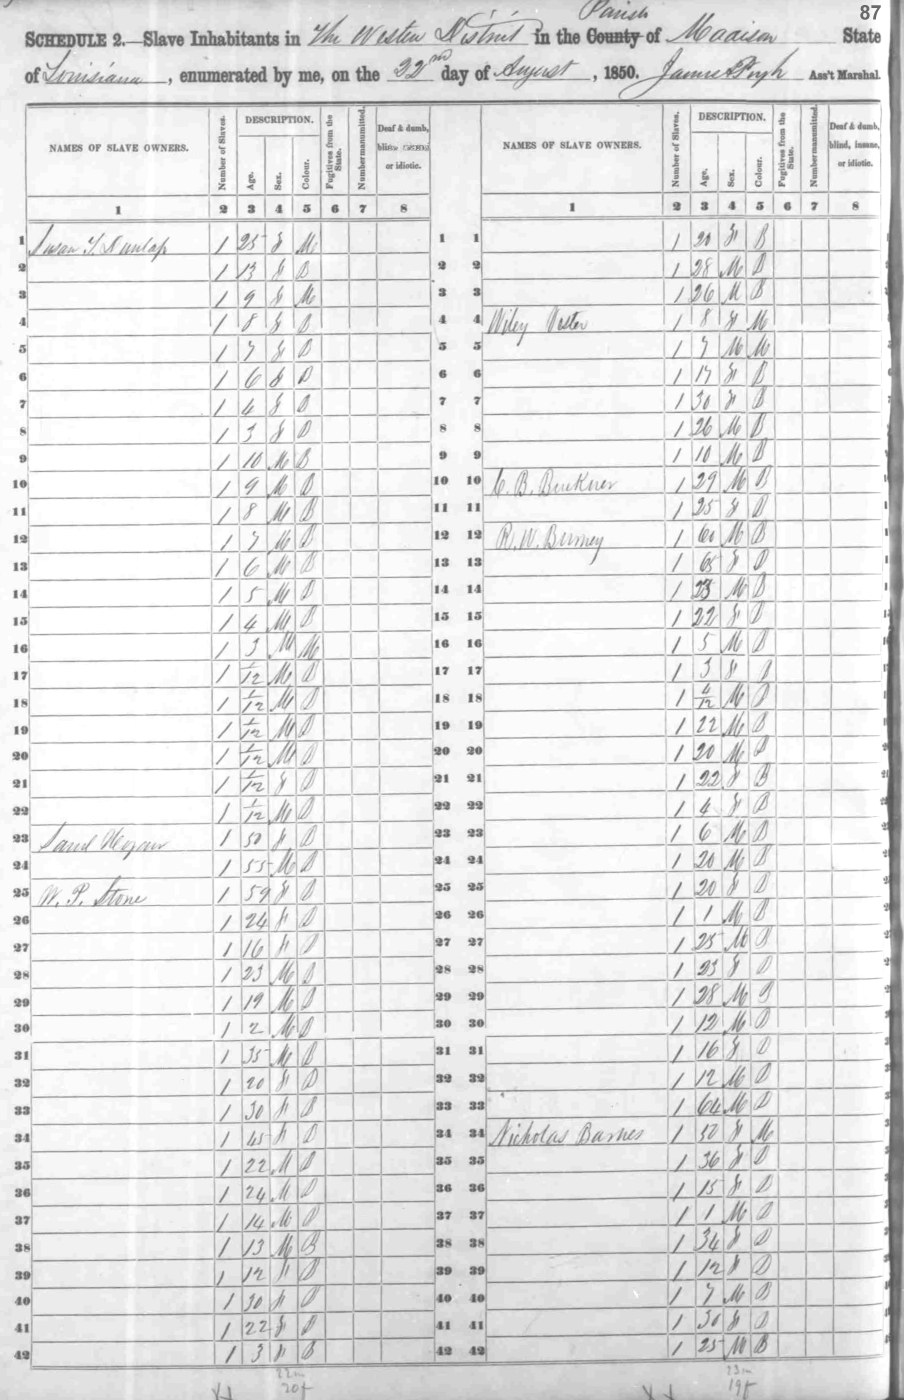 87
SCHEDULE 2.—Slave Inhabitants in The Western District in the County Parish of Madison State
of Louisiana, enumerated by me, on the 22nd day of August, 1850. James Pugh Ass't Marshal.
NAMES OF SLAVE OWNERS. Number of Slaves. DESCRIPTION. Age. Sex. Colour. Fugitives from the State. Number manumitted. Deaf & dumb, blind, insane, or idiotic. NAMES OF SLAVE OWNERS. Number of Slaves. DESCRIPTION. Age. Sex. Colour. Fugitives from the State. Number manumitted. Deaf & dumb, blind, insane, or idiotic.
1 2 3 4 5 6 7 8 1 2 3 4 5 6 7 8
1 Susan T. Dunlap 1 25 F M 1 1 1 20 F B
2 1 13 F B 2 2 1 28 M B
3 1 9 F M 3 3 1 26 M B
4 1 8 F B 4 4 Wiley 1 8 F M
5 1 7 F B 5 5 1 7 M M
6 1 6 F B 6 6 1 17 F B
7 1 4 F B 7 7 1 30 F B
8 1 3 F B 8 8 1 26 M B
9 1 10 M B 9 9 1 10 M B
10 1 9 M B 10 10 C. B. Buckner 1 29 M B
11 1 8 M B 11 11 1 25 F B
12 1 7 M B 12 12 R. W. Burney 1 60 M B
13 1 6 M B 13 13 1 65 F B
14 1 5 M B 14 14 1 23 M B
15 1 4 M B 15 15 1 22 F B
16 1 3 M M 16 16 1 5 M B
17 1 1/12 M B 17 17 1 3 F B
18 1 1/12 M B 18 18 1 4/12 M B
19 1 1/12 M B 19 19 1 22 M B
20 1 1/12 M B 20 20 1 20 M B
21 1 1/12 F B 21 21 1 22 F B
22 1 1/12 M B 22 22 1 4 F B
23 Saml Hogan 1 50 F B 23 23 1 6 M B
24 1 55 M B 24 24 1 20 M B
25 W. P. Stone 1 59 F B 25 25 1 20 F B
26 1 24 F B 26 26 1 1 M B
27 1 16 F B 27 27 1 25 M B
28 1 23 M B 28 28 1 23 F B
29 1 19 M B 29 29 1 28 M B
30 1 2 M B 30 30 1 12 M B
31 1 35 M B 31 31 1 16 F B
32 1 20 F B 32 32 1 12 M B
33 1 30 F B 33 33 1 64 M B
34 1 45 F B 34 34 Nicholas Barnes 1 50 F M
35 1 22 M B 35 35 1 36 F B
36 1 24 M B 36 36 1 15 F B
37 1 14 M B 37 37 1 1 M B
38 1 13 M B 38 38 1 34 F B
39 1 12 F B 39 39 1 12 F B
40 1 30 F B 40 40 1 7 M B
41 1 22 F B 41 41 1 30 F B
42 1 3 F B 42 42 1 25 M B
22m 23m
20f 19f